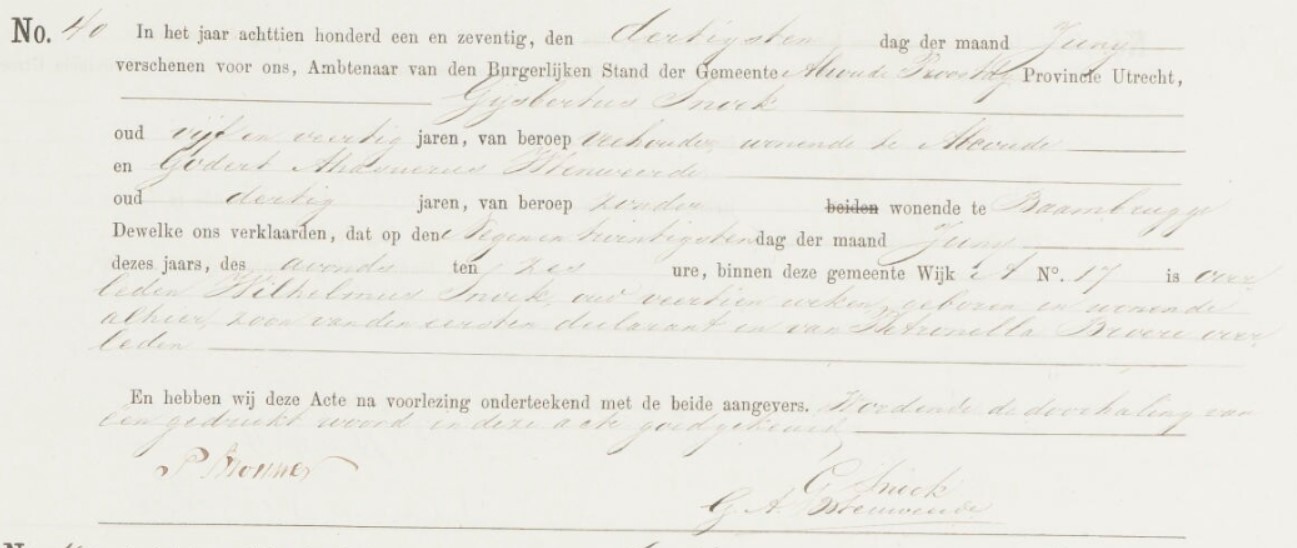 No. 40 In het jaar achttien honderd een en zeventig, den dertigsten dag der maand Juny
verschenen voor ons, Ambtenaar van den Burgerlijken Stand der Gemeente Abcoude Proostdy Provincie Utrecht,
Gijsbertus Snoek
oud vijf en veertig jaren, van beroep veehouder, wonende te Abcoude
en Godert
oud dertig jaren, van beroep zonder beiden wonende te Baambrugge
Dewelke ons verklaarden, dat op den Negen en twintigsten dag der maand Juny
dezes jaars, des avonds ten zes ure, binnen deze gemeente Wijk No. 17 is over
leden Wilhelmus Snoek, oud veertien weken, geboren en wonende
alhier, zoon van den eersten declarant en van Petronella over
leden
En hebben wij deze Acte na voorlezing onderteekend met de beide aangevers. Wordende de doorhaling van
een gedrukt woord in deze acte goedgekeurd
G Snoek
G. A.